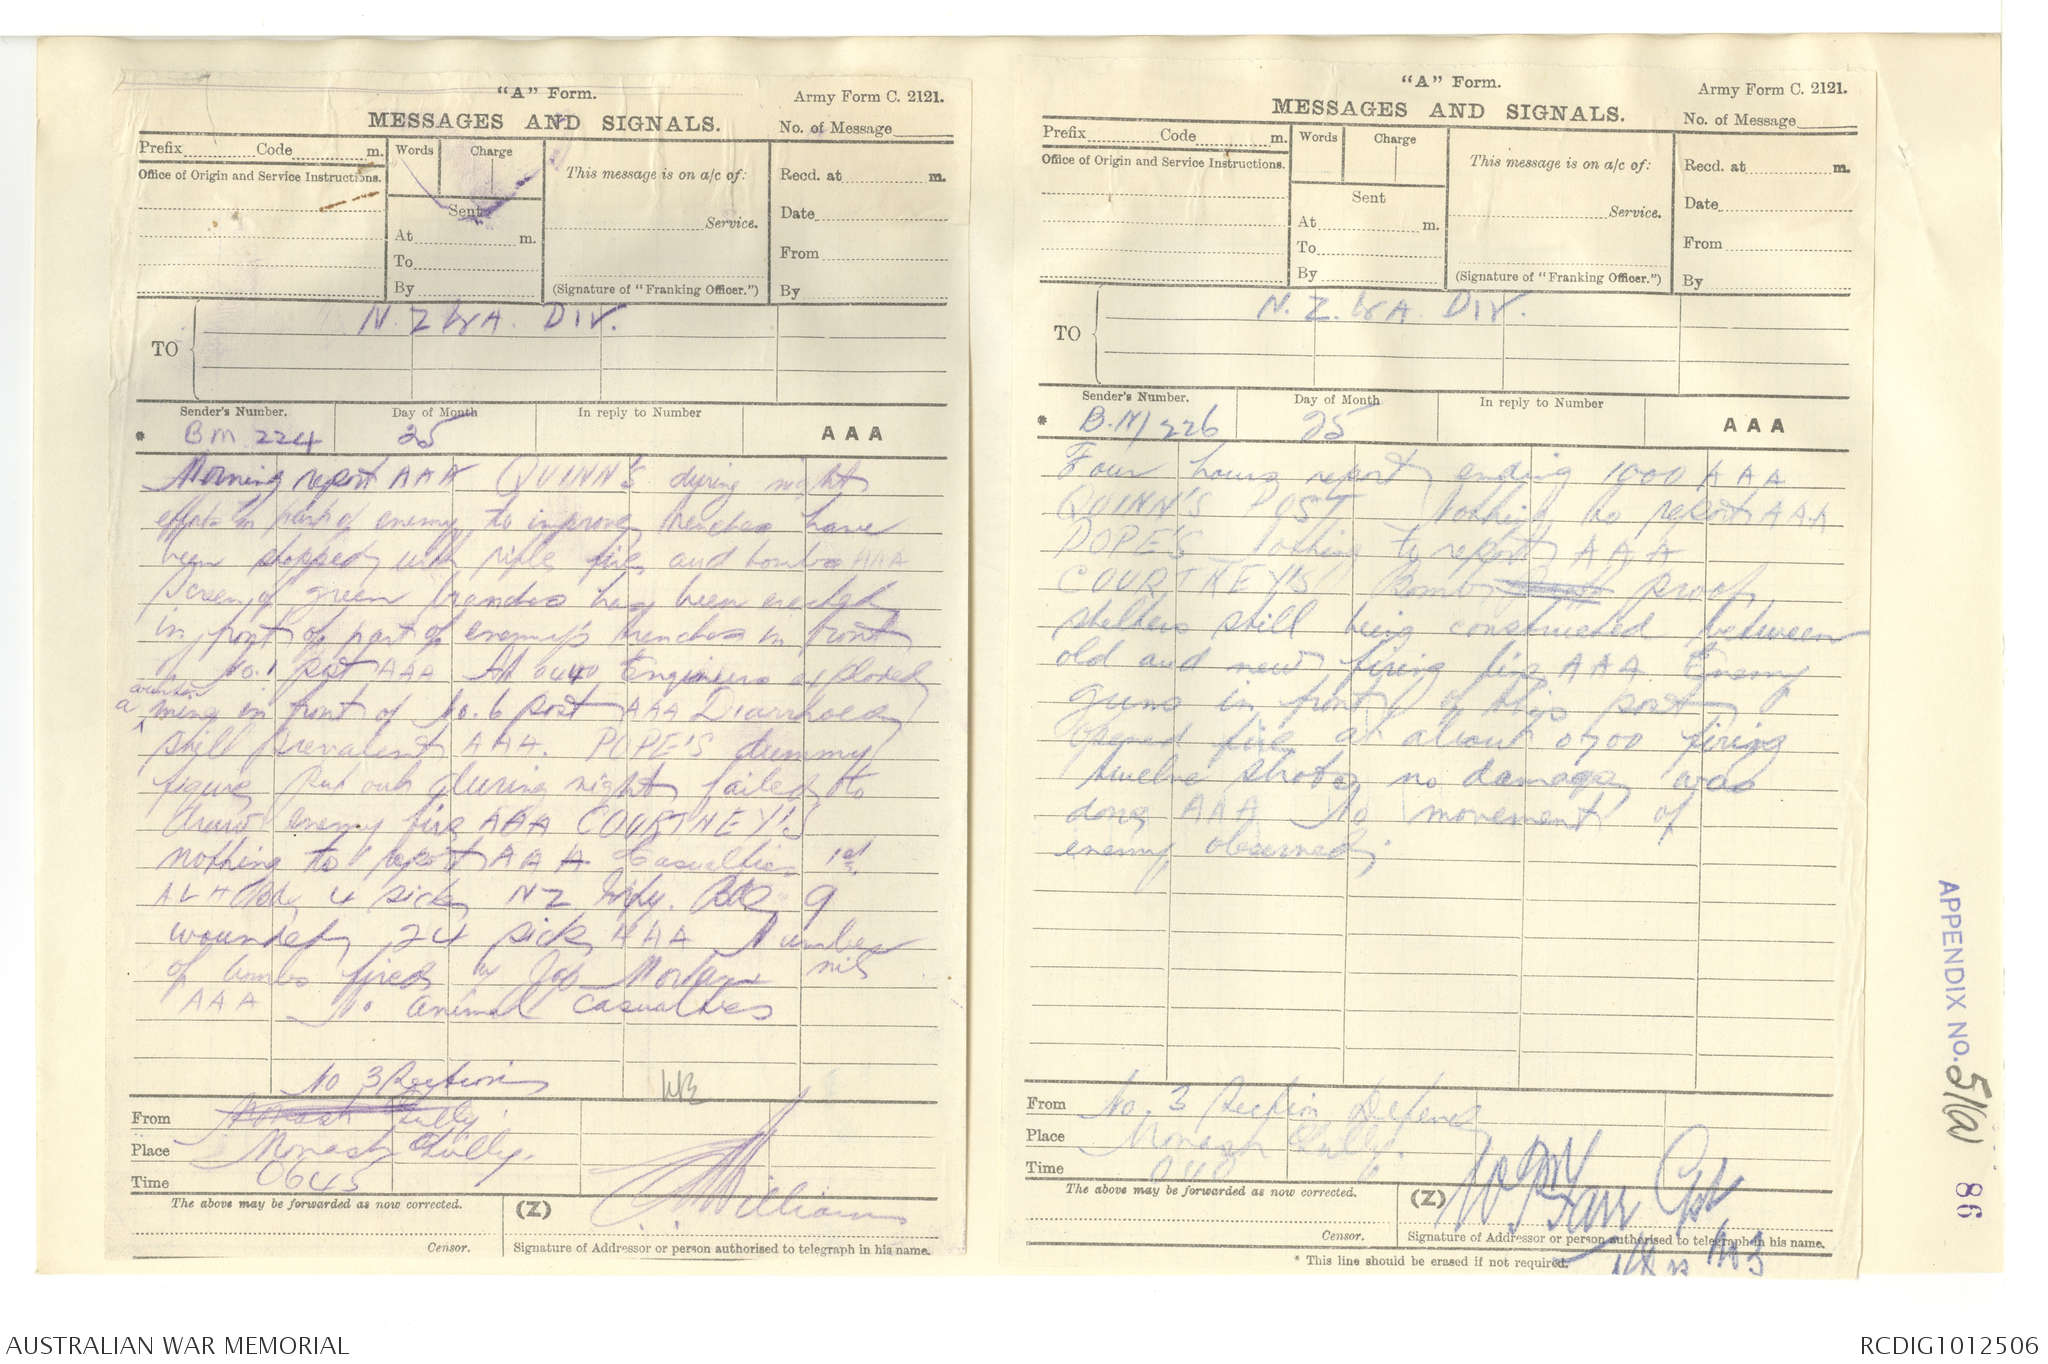 "A" Form.
Army Form C. 2121.
MESSAGES AND SIGNALS.
No. of Message
Prefix Code m.
Words Charge
This message is on a/c of:
Recd. at m.
Office of Origin and Service Instructions.
Sent
Service.
Date
At m.
From
To
By
(Signature of "Franking Officer.")
By
TO
N. Z & A. DIV.
Sender's Number.
Day of Month
In reply to Number
* BM 224
25
AAA
Morning report AAA QUINN'S during night
efforts on part of enemy to improve trenches have
been stopped with rifle fire and bombs AAA
Screen of green branches has been erected
in front of part of enemy's trenches in front
of No. 1 post AAA At 0440 Engineers exploded
a counter
mine in front of No. 6 post AAA Diarrhoea
still prevalent AAA. POPE'S dummy
figure put out during night failed to
draw enemy fire AAA COURTNEY'S
nothing to report AAA Casualties 1st
ALH Bde 4 sick NZ Infy. Bde 9
wounded 24 sick AAA Number
of bombs fired by Jap Mortar nil
AAA No animal casualties
No 3 Section
From
Monash Gully
Place
Monash Gully.
Time
0645
The above may be forwarded as now corrected.
(Z)
Williams
Censor.
Signature of Addressor or person authorised to telegraph in his name.
"A" Form.
Army Form C. 2121.
MESSAGES AND SIGNALS.
No. of Message
Prefix Code m.
Words Charge
This message is on a/c of:
Recd. at m.
Office of Origin and Service Instructions.
Sent
Service.
Date
At m.
From
To
By
(Signature of "Franking Officer.")
By
TO
N. Z. & A. DIV.
Sender's Number.
Day of Month
In reply to Number
* B.M 226
25
AAA
Four hours report ending 1000 AAA
QUINN'S POST Nothing to report AAA
POPE'S nothing to report AAA
COURTNEY'S Bomb proof
shelters still being constructed between
old and new firing line AAA Enemy
guns in front of this post
opened fire at about 0700 firing
twelve shots no damage was
done AAA No movement of
enemy observed.
From
No. 3 Section Defence
Place
Monash Gully.
Time
The above may be forwarded as now corrected.
(Z)
Farr Capt
Censor.
Signature of Addressor or person authorised to telegraph in his name.
No 3
* This line should be erased if not required.
APPENDIX NO. 51(a)
86
AUSTRALIAN WAR MEMORIAL
RCDIG1012506